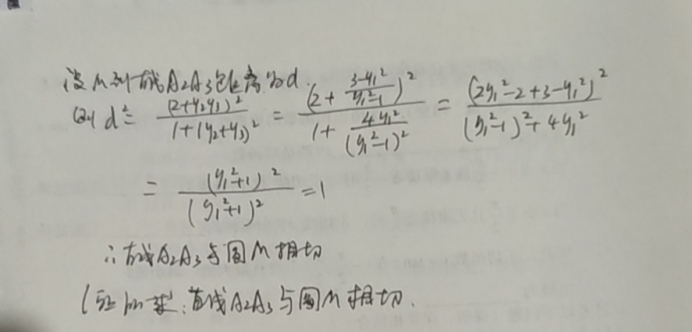 设M到直线A₂A₃距离为d.
则 d² = (2+y₂y₃)²/(1+(y₂+y₃)²) = (2+(3-y₁²)/(y₁²-1))²/(1+4y₁²/(y₁²-1)²) = (2y₁²-2+3-y₁²)²/((y₁²-1)²+4y₁²)
= (y₁²+1)²/(y₁²+1)² = 1
∴直线A₂A₃与圆M相切
直线A₂A₃与圆M相切.